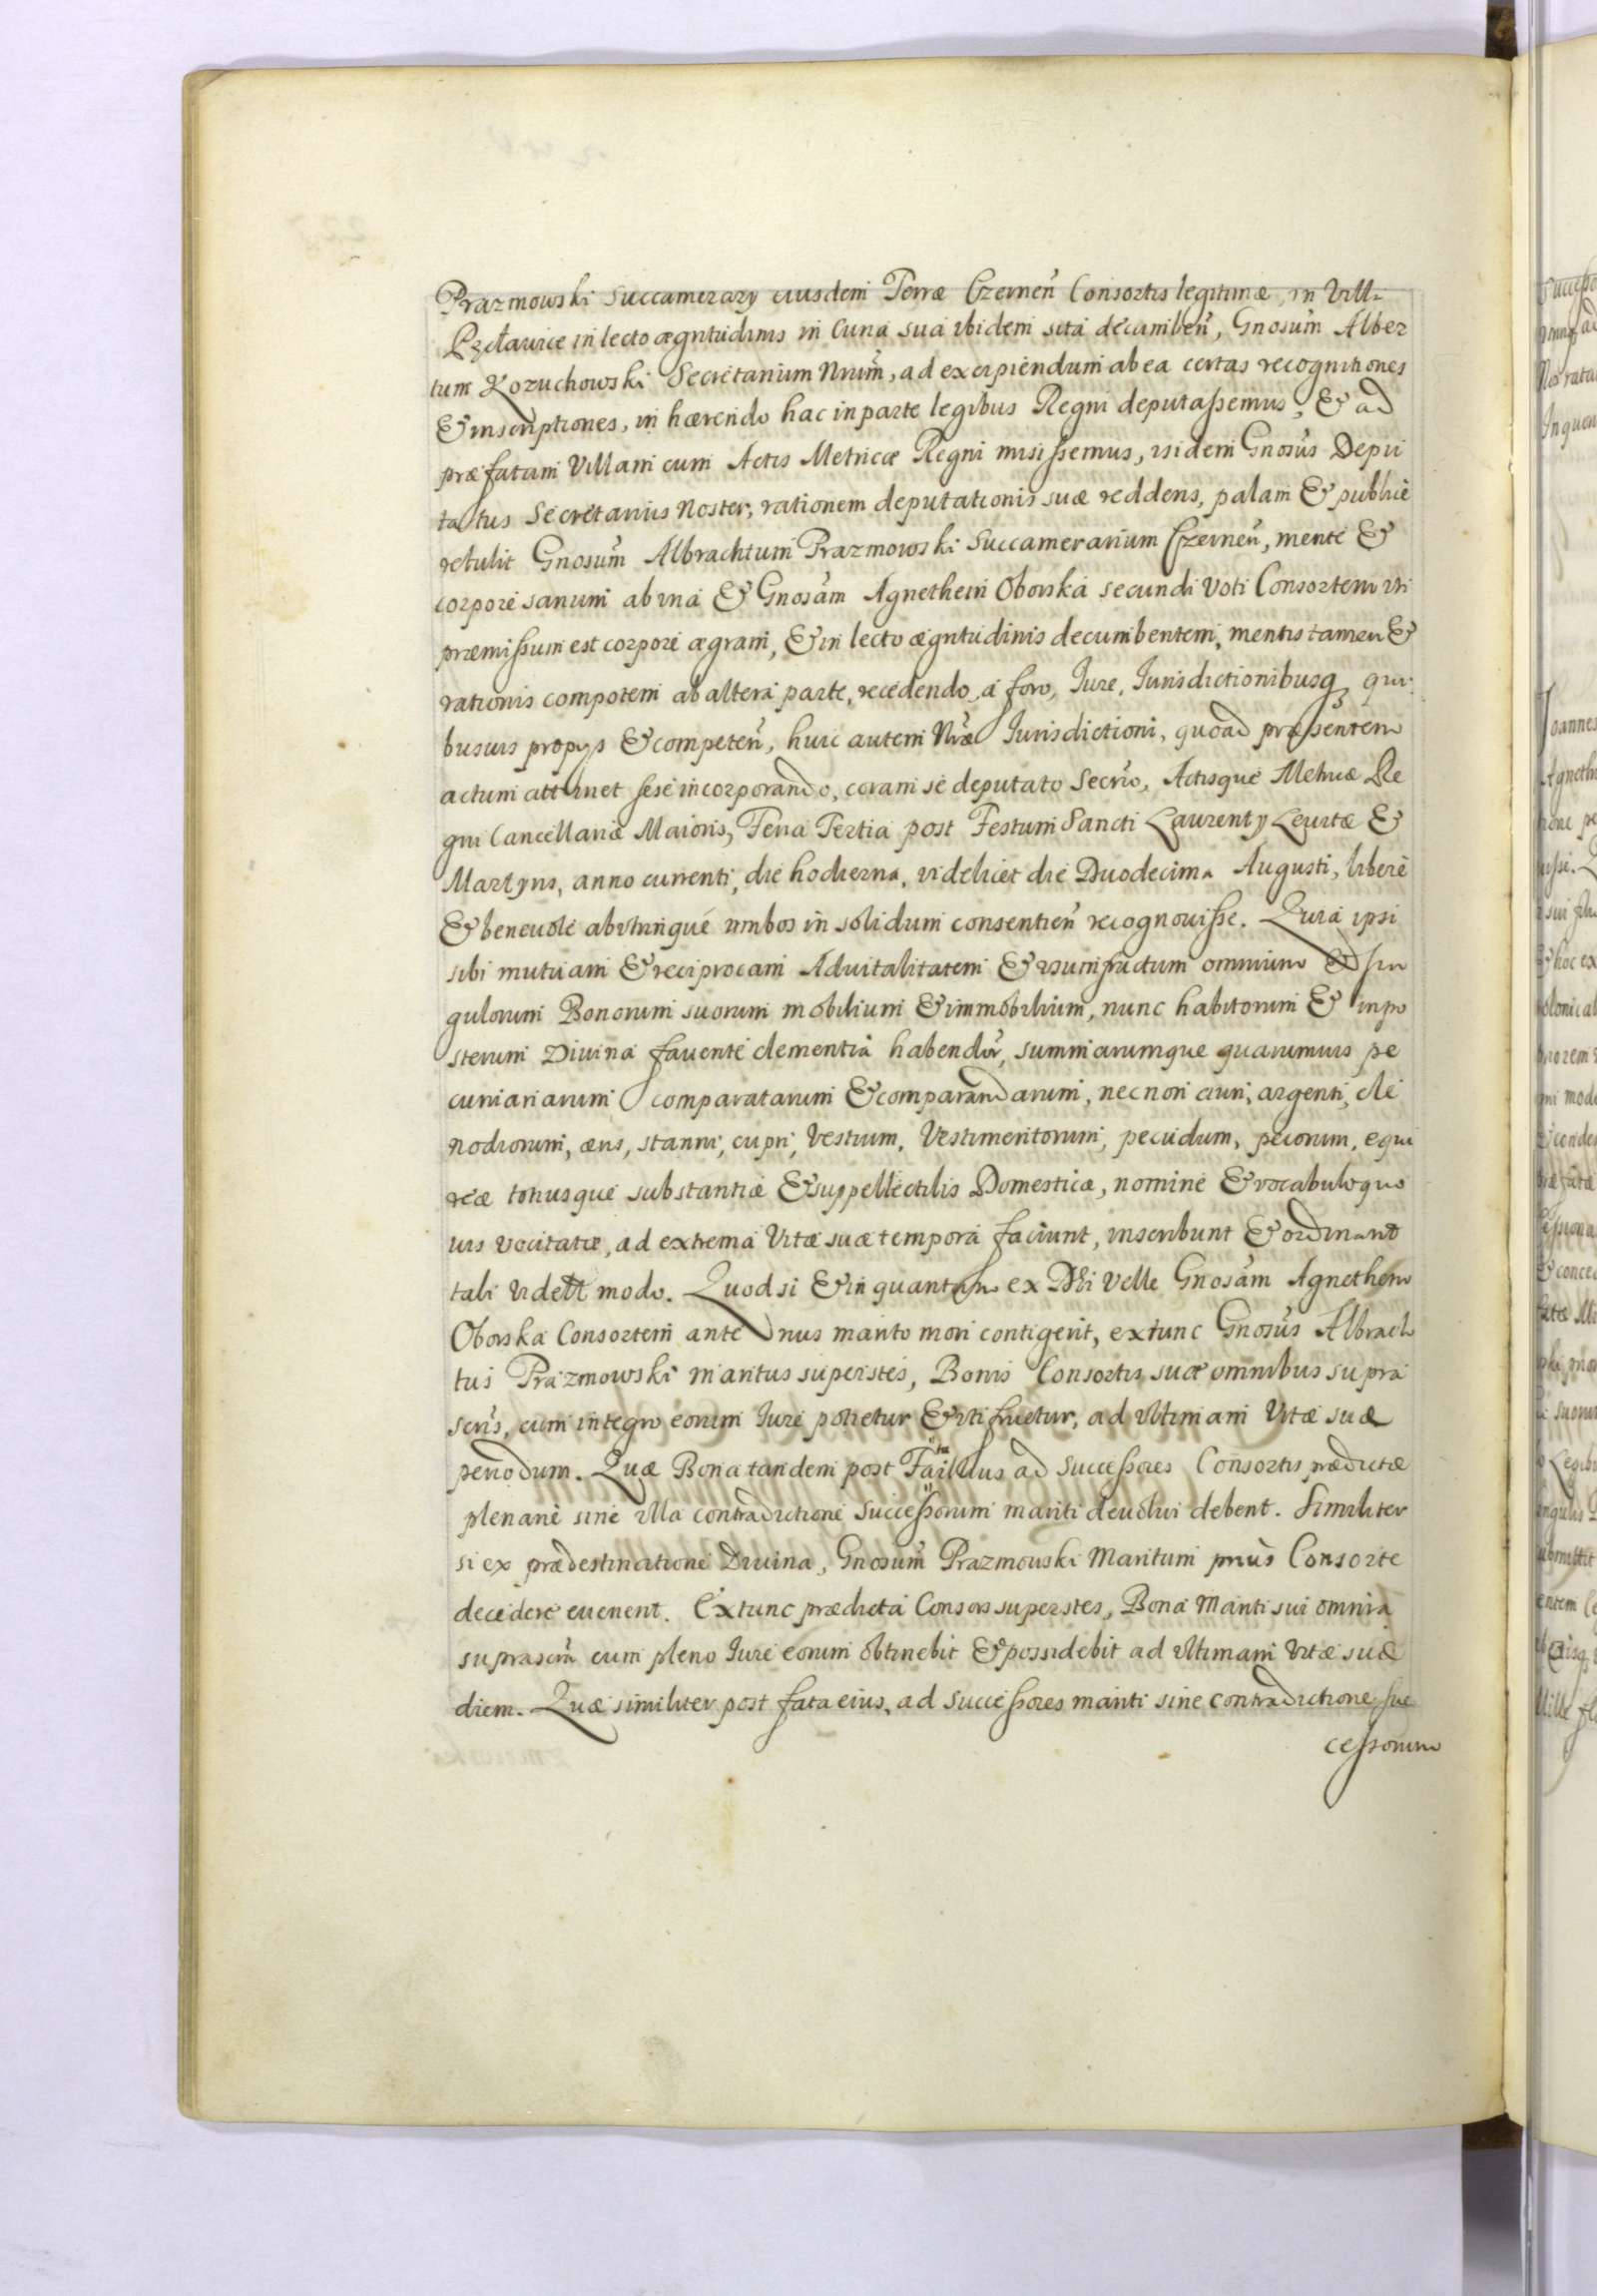 Prazmowski Succamerarij eiusdem Terræ Czernen̄ Consortis legitimæ, in Villa
in lecto ægritudinis in Curia sua ibidem sita decumben̄, Gnosum̄ Alber
tum Kozuchowski Secretarium Nrum̄, ad excipiendum ab ea certas recognitiones
& inscriptiones, in hærendo hac in parte legibus Regni deputassemus, & ad
præfatam Villam cum Actis Metricæ Regni misissemus, isidem Gnosus̄ Depu
tatus Secretarius Noster, rationem deputationis suæ reddens, palam & publicè
retulit Gnosum̄ Albrachtum Prazmowski Succamerarium Czernen̄, mente &
corpore sanum ab una & Gnosam̄ Agnethem Oborska secundi Voti Consortem uti
præmissum est corpore ægram, & in lecto ægritudinis decumbentem, mentis tamen &
rationis compotem ab altera parte, recedendo à foro, Iure, Iurisdictionibusq₃ qui
busuis proprijs & competen̄, huic autem Nrǣ Iurisdictioni, quoad præsentem
actum attinet sese incorporando, coram se deputato Secrio̅, Actisque Metricæ Re
gni Cancellariæ Maioris, Feria Tertia post Festum Sancti Laurentij Leuitæ &
Martyris, anno currenti, die hodierna, videlicet die Duodecima Augusti, liberè
& beneuolè ab utrinque ambos in solidum consentien̄ recognouisse. Quia ipsi
sibi mutuam & reciprocam Aduitalitatem & usumfructum omnium & sin
gulorum Bonorum suorum mobilium & immobilium, nunc habitorum & inpo
sterum Diuina fauente clementia habendor̄, summarumque quarumuis pe
cuniariarum comparatarum & comparandarum, necnon auri, argenti, cle
nodiorum, æris, stanni, cupri, Vestium, Vestimentorum, pecudum, pecorum, equi
reæ totiusque substantiæ & suppellectilis Domesticæ, nomine & vocabulo quo
uis vocitatæ, ad extrema Vitæ suæ tempora faciunt, inscribunt & ordinant
tali videtl̄ modo. Quod si & in quantum ex Dei velle Gnosam̄ Agnethem
Oborska Consortem ante nus marito mori contigerit, extunc Gnosus̄ Albrach
tus Prazmowski maritus superstes, Bonis Consortis suæ omnibus supra
scris̄, cum integro eorum Iure potietur & utifruetur, ad vltimam Vitæ suæ
periodum. Quæ Bona tandem post Fata illius ad Successores Consortis prædictæ
plenariè sine vlla contradictione Successorum mariti deuolui debent. Similiter
si ex prædestinatione Diuina, Gnosum̄ Prazmowski Maritum priùs Consorte
decedere euenerit. Extunc prædicta Consors superstes, Bona Mariti sui omnia
suprascrī̄ cum pleno Iure eorum obtinebit & possidebit ad vltimam vitæ suæ
diem. Quæ similiter post fata eius, ad Successores mariti sine contradictione suc
cessorum